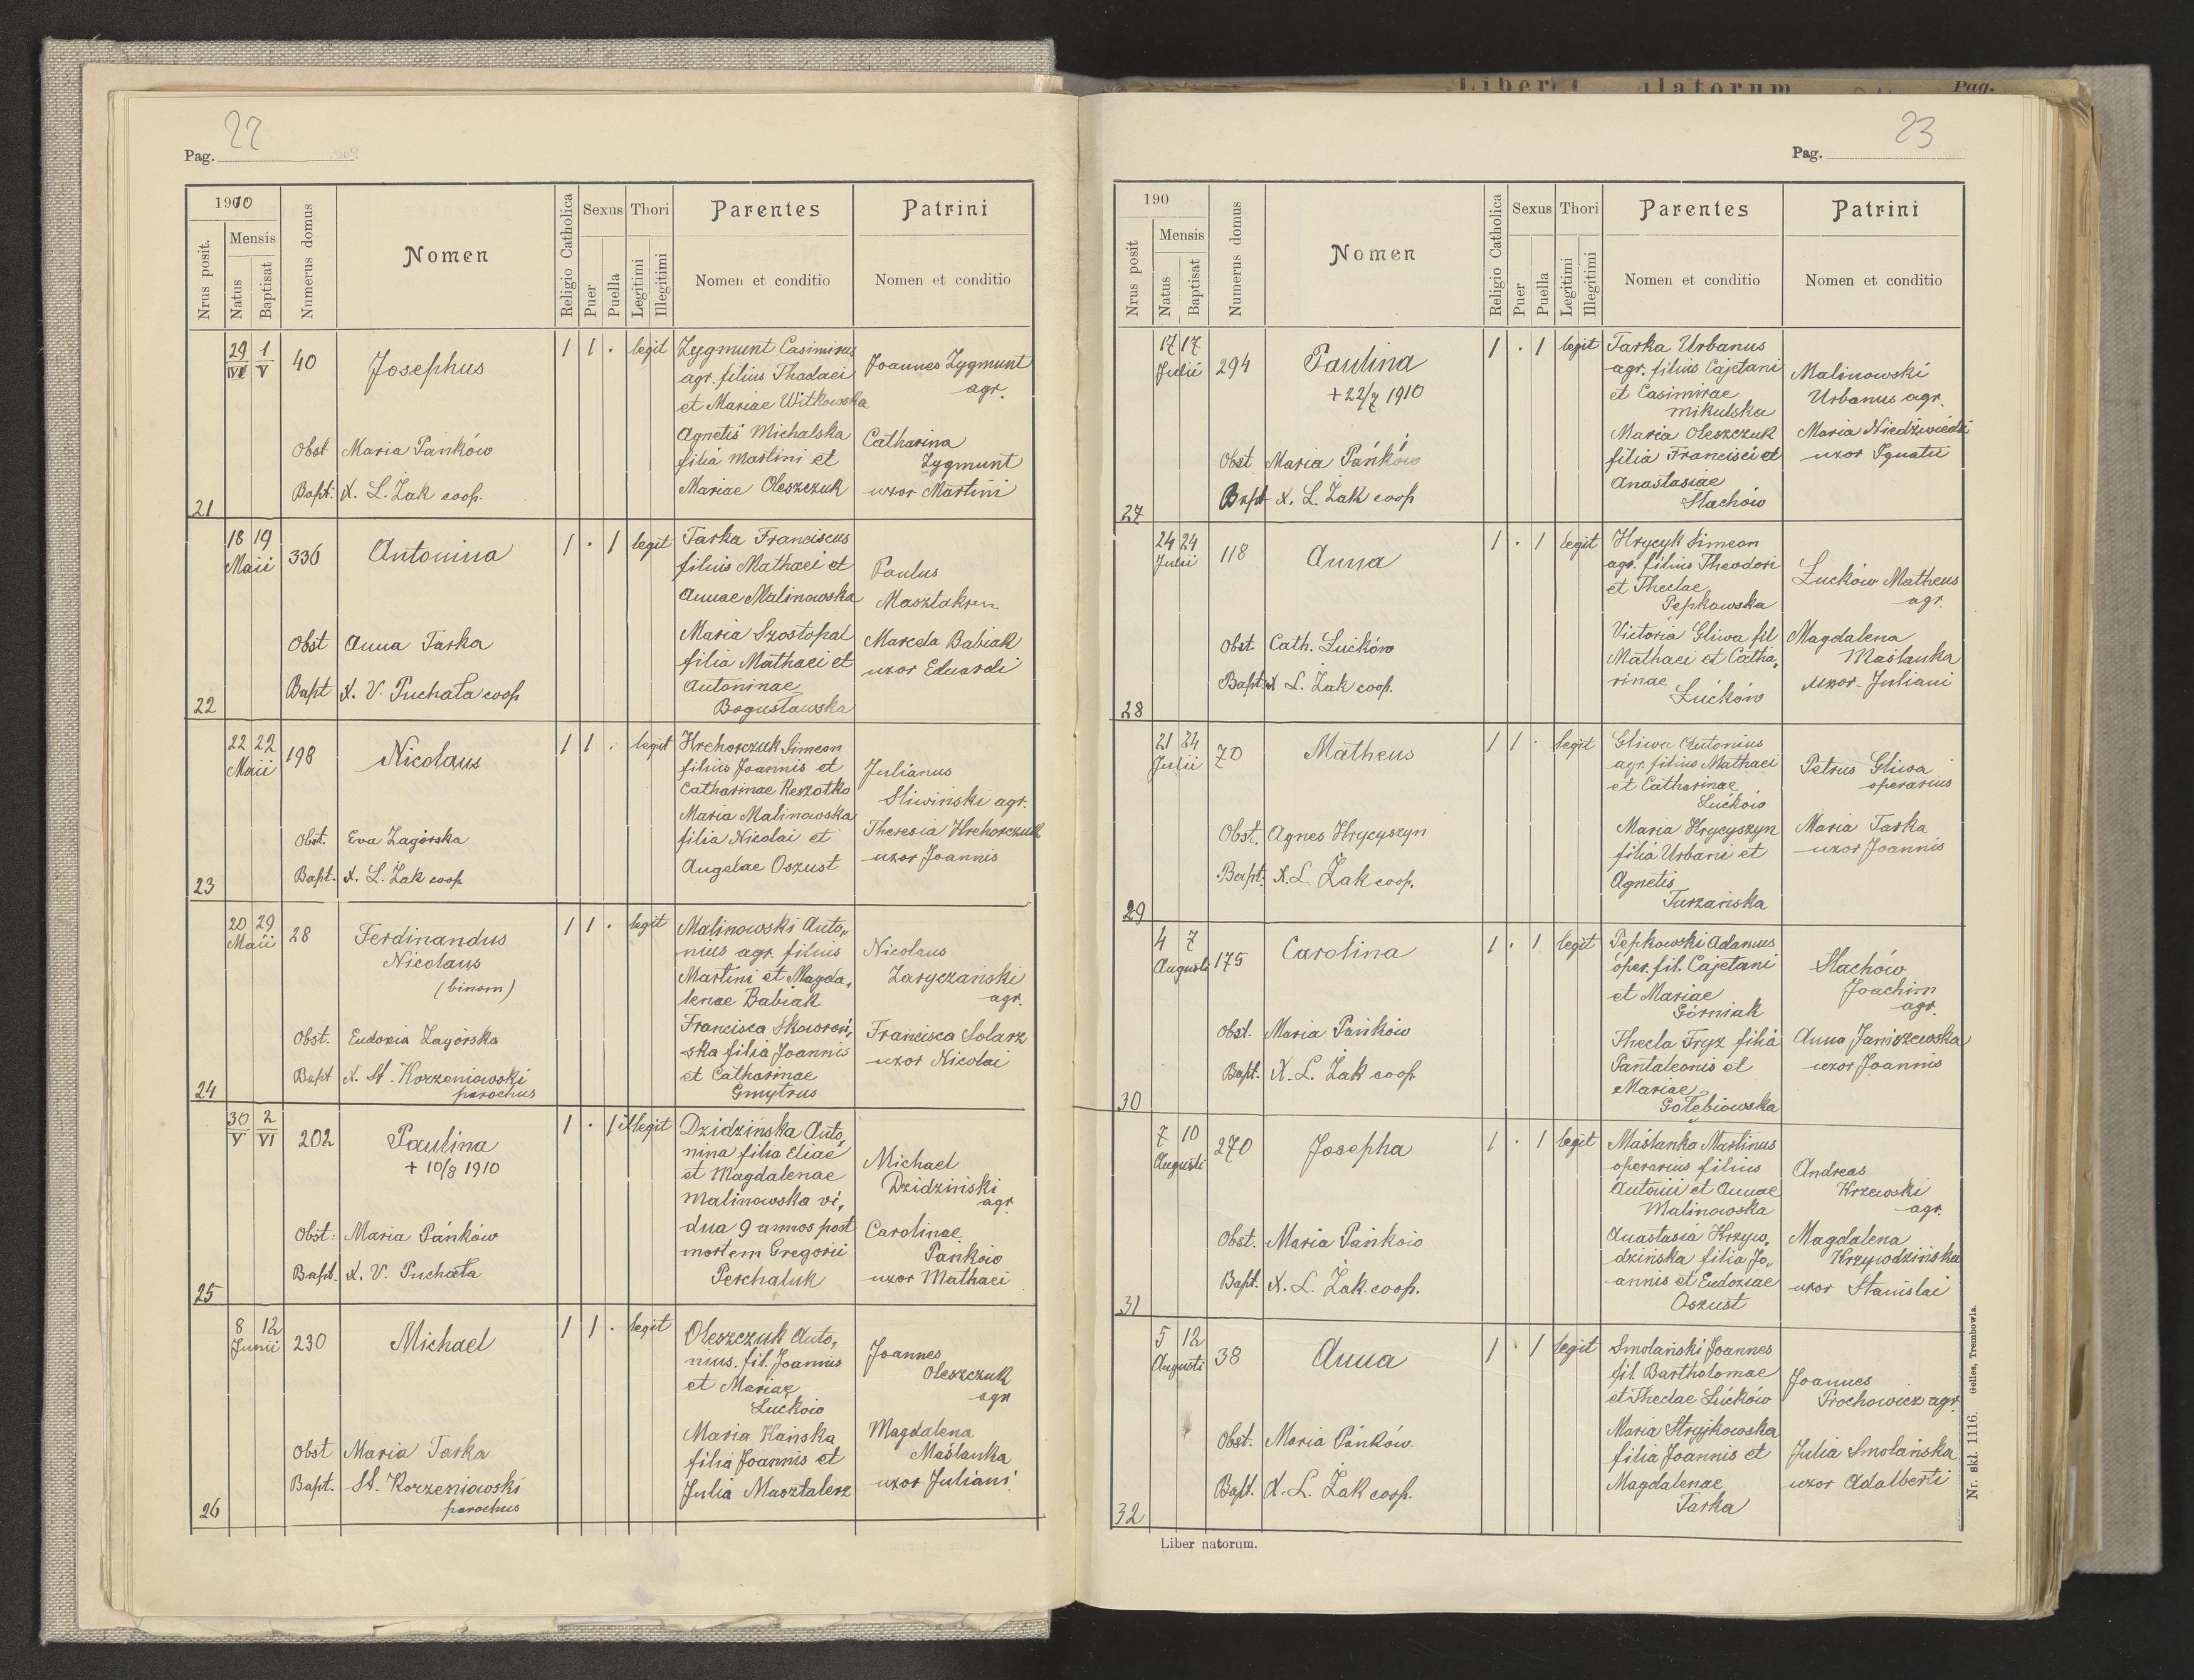 22
Pag.
1910
Nrus posit.
Mensis
Natus
Baptisat
Numerus domus
Nomen
Religio Catholica
Sexus
Puer
Puella
Thori
Legitimi
Illegitimi
Parentes
Nomen et conditio
Patrini
Nomen et conditio
21
29 1
IV V
40
Josephus
1 1 . legit
Obst Maria Pańków
Bapt: X. L. Żak coop.
Zygmunt Casimirus
agr. filius Thadaei
et Mariae Witkowska
Agnetis Michalska
filia Martini et
Mariae Oleszczuk
Joannes Zygmunt
agr.
Catharina
Zygmunt
uxor Martini
22
18 19
Maii
336
Antonina
1 . 1 legit
Obst Anna Tarka
Bapt X. V. Puchała coop
Tarka Franciscus
filius Mathaei et
Annae Malinowska
Maria Szostopal
filia Mathaei et
Antoninae
Bogusławska
Paulus
Marcela Babiak
uxor Eduardi
23
22 22
Maii
198
Nicolaus
1 1 . legit
Obst. Eva Zagórska
Bapt. X. L. Żak coop
Hrehorczuk Simeon
filius Joannis et
Catharinae Reszotko
Maria Malinowska
filia Nicolai et
Angelae Oszust
Julianus
Śliwiński agr.
Theresia Hrehorczuk
uxor Joannis
24
20 29
Maii
28
Ferdinandus
Nicolaus
(binom)
1 1 . legit
Obst. Eudoxia Zagórska
Bapt X. St. Korzeniowski
parochus
Malinowski Anto„
nius agr. filius
Martini et Magda„
lenae Babiak
Francisca Skowroń„
ska filia Joannis
et Catharinae
Gmytrus
Nicolaus
Zaryczański
agr.
Francisca Solarz
uxor Nicolai
25
30 2
V VI
202
Paulina
+ 10/8 1910
1 . 1 illegit
Obst: Maria Pańków
Bapt. X. V. Puchała
Dzidzińska Anto„
nina filia Eliae
et Magdalenae
Malinowska vi„
dua 9 annos post
mortem Gregorii
Perchaluk
Michael
Dzidziński
agr
Carolinae
Pańków
uxor Mathaei
26
8 12
Junii
230
Michael
1 1 . legit
Obst Maria Tarka
Bapt. St. Korzeniowski
parochus
Oleszczuk Anto„
nius. fil. Joannis
et Mariae
Łuckow
Maria Kańska
filia Joannis et
Julia Masztalerz
Joannes
Oleszczuk
agr
Magdalena
Maślanka
uxor Juliani
23
Pag.
Pag.
190
Nrus posit
Mensis
Natus
Baptisat
Numerus domus
Nomen
Religio Catholica
Sexus
Puer
Puella
Thori
Legitimi
Illegitimi
Parentes
Nomen et conditio
Patrini
Nomen et conditio
27
17 17
Julii
294
Paulina
+ 22/7 1910
1 . 1 legit
Obst Maria Pańków
Bapt X. L. Żak coop
Tarka Urbanus
agr. filius Cajetani
et Casimirae
Mikulska
Maria Oleszczuk
filia Francisci et
Anastasiae
Stachów
Malinowski
Urbanus agr.
Maria Niedźwiedzki
uxor Ignatii
28
24 24
Julii
118
Anna
1 . 1 legit
Obst. Cath. Łucków
Bapt. X L. Żak coop.
Hrycyk Simeon
agr. filius Theodori
et Theclae
Pepkowska
Victoria Gliwa fil
Mathaei et Catha„
rinae
Łućków
Łucków Matheus
agr.
Magdalena
Maślanka
uxor Juliani
29
21 24
Julii
70
Matheus
1 1 . legit
Obst. Agnes Hrycyszyn
Bapt. X. L. Żak coop.
Gliwa Antonius
agr. filius Mathaei
et Catharinae
Łućków
Maria Hrycyszyn
filia Urbani et
Agnetis
Turzańska
Petrus Gliwa
operarius
Maria Tarka
uxor Joannis
30
4 7
Augusti
175
Carolina
1 . 1 legit
Obst. Maria Pańków
Bapt. X. L. Żak coop
Pepkowski Adamus
oper. fil. Cajetani
et Mariae
Górniak
Thecla Fryz filia
Pantaleonis et
Mariae
Gołębiowska
Stachów
Joachim
agr.
Anna Janiszewska
uxor Joannis
31
7 10
Augusti
270
Josepha
1 . 1 legit
Obst. Maria Pańków
Bapt. X. L. Żak coop.
Maślanka Martinus
operarius filius
Antonii et Annae
Malinowska
Anastasia Krzyw„
dzińska filia Jo„
annis et Eudoxiae
Oszust
Andreas
Krzewski
agr.
Magdalena
Krzywodzińska
uxor Stanislai
32
5 12
Augusti
38
Anna
1 . 1 legit
Obst. Maria Pańków
Bapt. X. L. Żak coop.
Smolański Joannes
fil. Bartholomae
et Theclae Łućków
Maria Stryjkowska
filia Joannis et
Magdalenae
Tarka
Joannes
Prochowicz agr.
Julia Smolańska
uxor Adalberti
Liber natorum.
Nr. skł. 1116. Gelles, Trembowla.